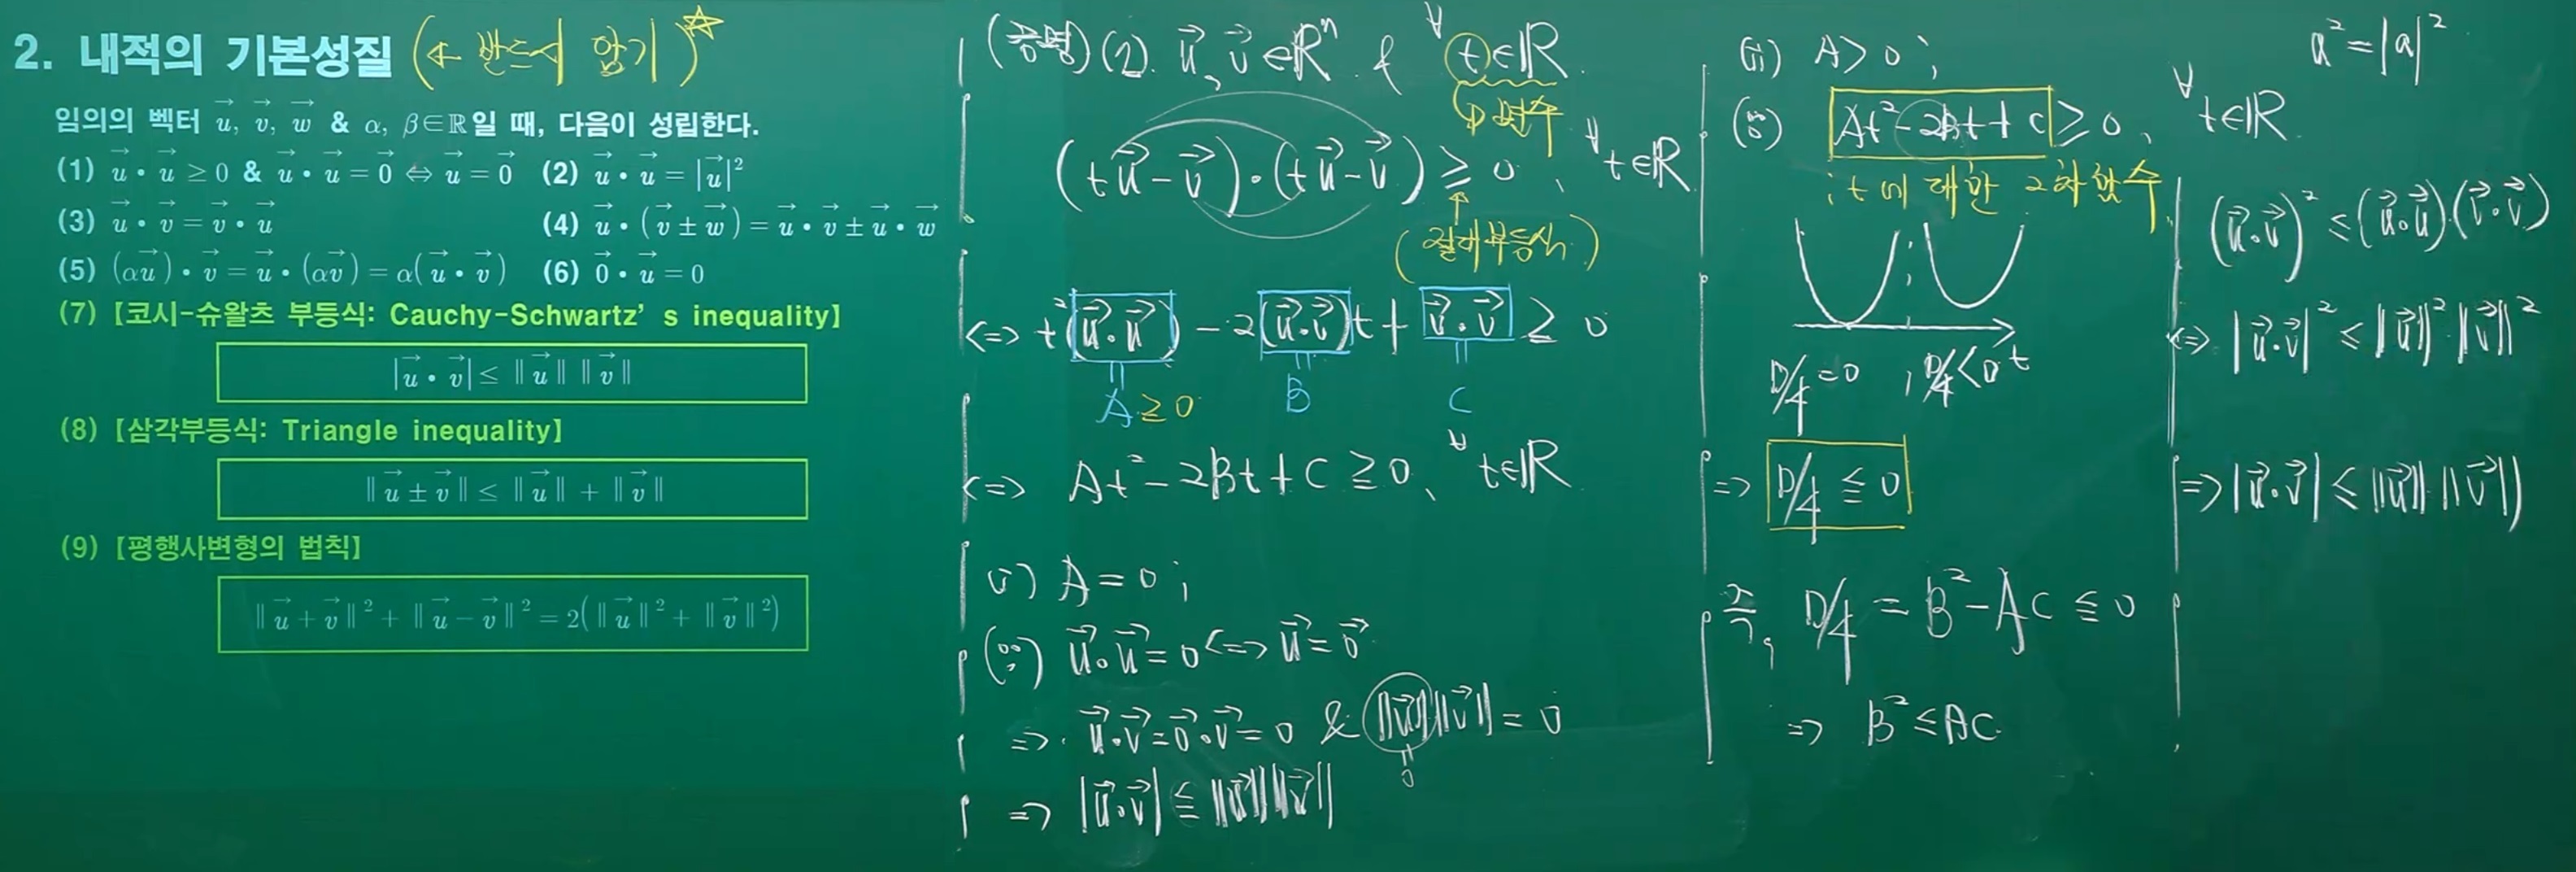 2. 내적의 기본성질 (← 반드시 암기)☆
임의의 벡터 u⃗, v⃗, w⃗ & α, β∈ℝ일 때, 다음이 성립한다.
(1) u⃗ • u⃗ ≥ 0 & u⃗ • u⃗ = 0⃗ ⇔ u⃗ = 0⃗ (2) u⃗ • u⃗ = |u⃗|²
(3) u⃗ • v⃗ = v⃗ • u⃗ (4) u⃗ • (v⃗ ± w⃗) = u⃗ • v⃗ ± u⃗ • w⃗
(5) (αu⃗) • v⃗ = u⃗ • (αv⃗) = α(u⃗ • v⃗) (6) 0⃗ • u⃗ = 0
(7) 【코시-슈왈츠 부등식: Cauchy-Schwartz' s inequality】
|u⃗ • v⃗| ≤ ‖u⃗‖ ‖v⃗‖
(8) 【삼각부등식: Triangle inequality】
‖u⃗ ± v⃗‖ ≤ ‖u⃗‖ + ‖v⃗‖
(9) 【평행사변형의 법칙】
‖u⃗ + v⃗‖² + ‖u⃗ − v⃗‖² = 2(‖u⃗‖² + ‖v⃗‖²)
(증명) (2). u⃗, v⃗ ∈ ℝⁿ & ∀t∈ℝ.
변수
(tu⃗ − v⃗)•(tu⃗ − v⃗) ≥ 0, ∀t∈ℝ
↑
(절대부등식)
<=> t²(u⃗•u⃗) − 2(u⃗•v⃗)t + v⃗•v⃗ ≥ 0
A ≥ 0 B C
<=> At² − 2Bt + C ≥ 0, ∀t∈ℝ
i) A = 0 ;
(∵) u⃗•u⃗ = 0 <=> u⃗ = 0⃗
=> u⃗•v⃗ = 0⃗•v⃗ = 0 & ‖u⃗‖‖v⃗‖ = 0
0
=> |u⃗•v⃗| ≦ ‖u⃗‖‖v⃗‖
(ii) A > 0 ;
(∵) At² − 2Bt + C ≥ 0, ∀t∈ℝ.
; t에 대한 2차함수
t
D/4 = 0 , D/4 < 0
=> D/4 ≦ 0
즉, D/4 = B² − AC ≦ 0
=> B² ≤ AC
a² = |a|²
(u⃗•v⃗)² ≤ (u⃗•u⃗)(v⃗•v⃗)
<=> |u⃗•v⃗|² ≤ ‖u⃗‖² ‖v⃗‖²
=> |u⃗•v⃗| ≤ ‖u⃗‖ ‖v⃗‖